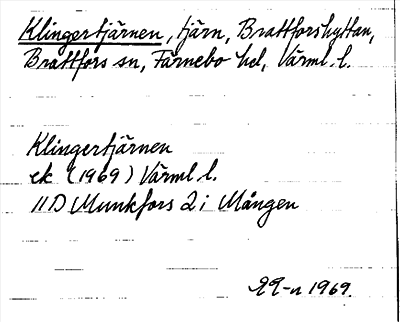 Klingertjärnen, tjärn, Brattforshyttan,
Brattfors sn, Färnebo hd, Värml. l.
Klingertjärnen
ek (1969) Värml l.
11D Munkfors 2 i Mången
1969.